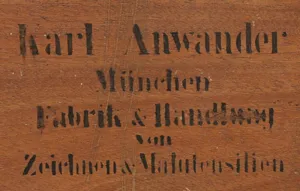 Karl Anwander
München
Fabrik & Handlung
von
Zeichnen & Malutensilien